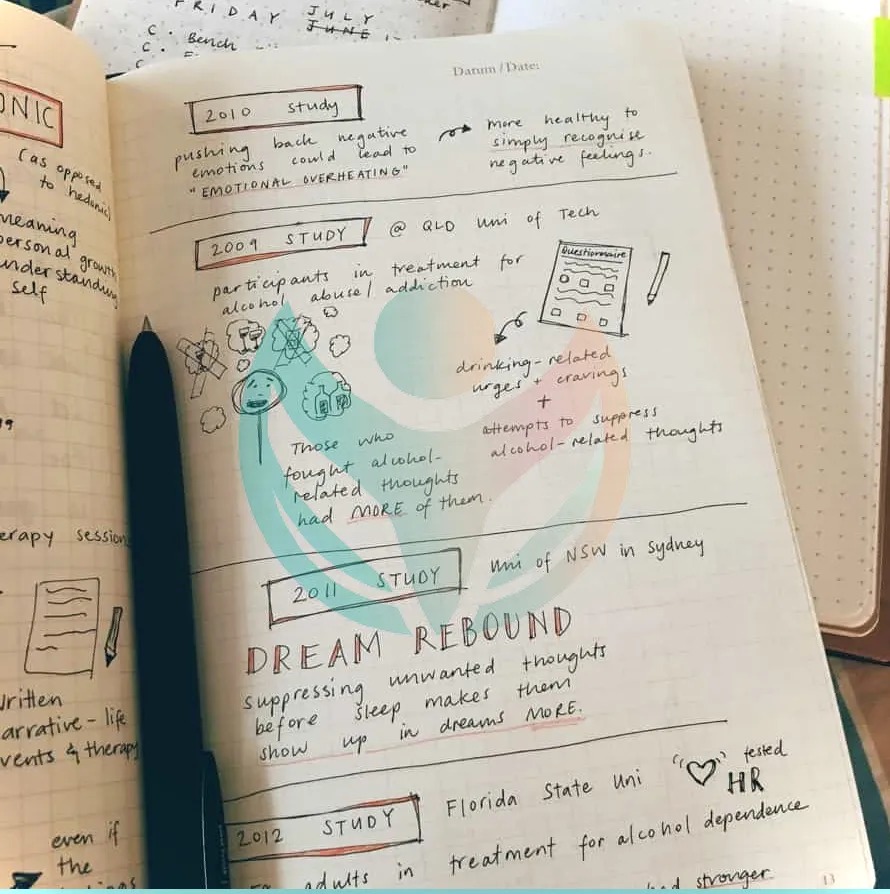 FRIDAY JULY
JUNE
C. Bench
C.
ONIC
(as opposed
to hedonic)
meaning
personal growth
understanding
self
therapy session
Written
narrative - life
events & therapy
even if
the
Datum / Date:
2010 study
pushing back negative
emotions could lead to
"EMOTIONAL OVERHEATING"
more healthy to
simply recognise
negative feelings.
2009 STUDY @ QLD uni of Tech
participants in treatment for
alcohol abuse / addiction
Questionnaire
drinking-related
urges + cravings
+
attempts to suppress
alcohol-related thoughts
Those who
fought alcohol-
related thoughts
had MORE of them.
2011 STUDY uni of NSW in Sydney
DREAM REBOUND
suppressing unwanted thoughts
before sleep makes them
show up in dreams MORE.
2012 STUDY Florida State Uni tested
HR
adults in treatment for alcohol dependence
had stronger
13